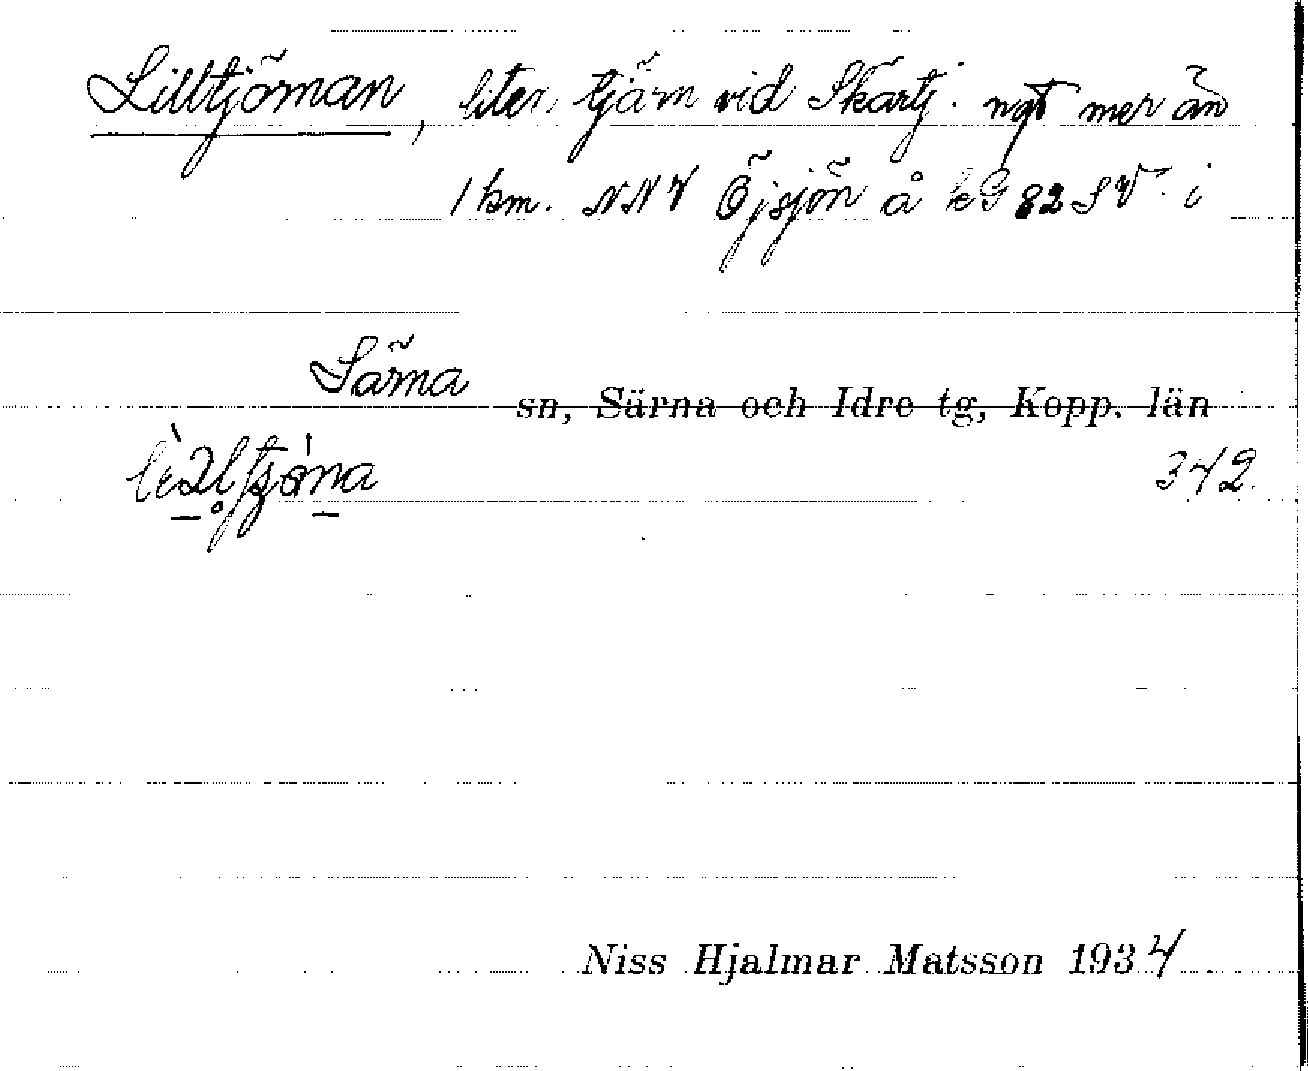 Lilltjörnan, liten tjärn vid Skärtj. ngt mer än
1 km. NNV Öjsjön å kG 82 SV. i
Särna sn, Särna och Idre tg, Kopp. län
342.
Niss Hjalmar Matsson 1934